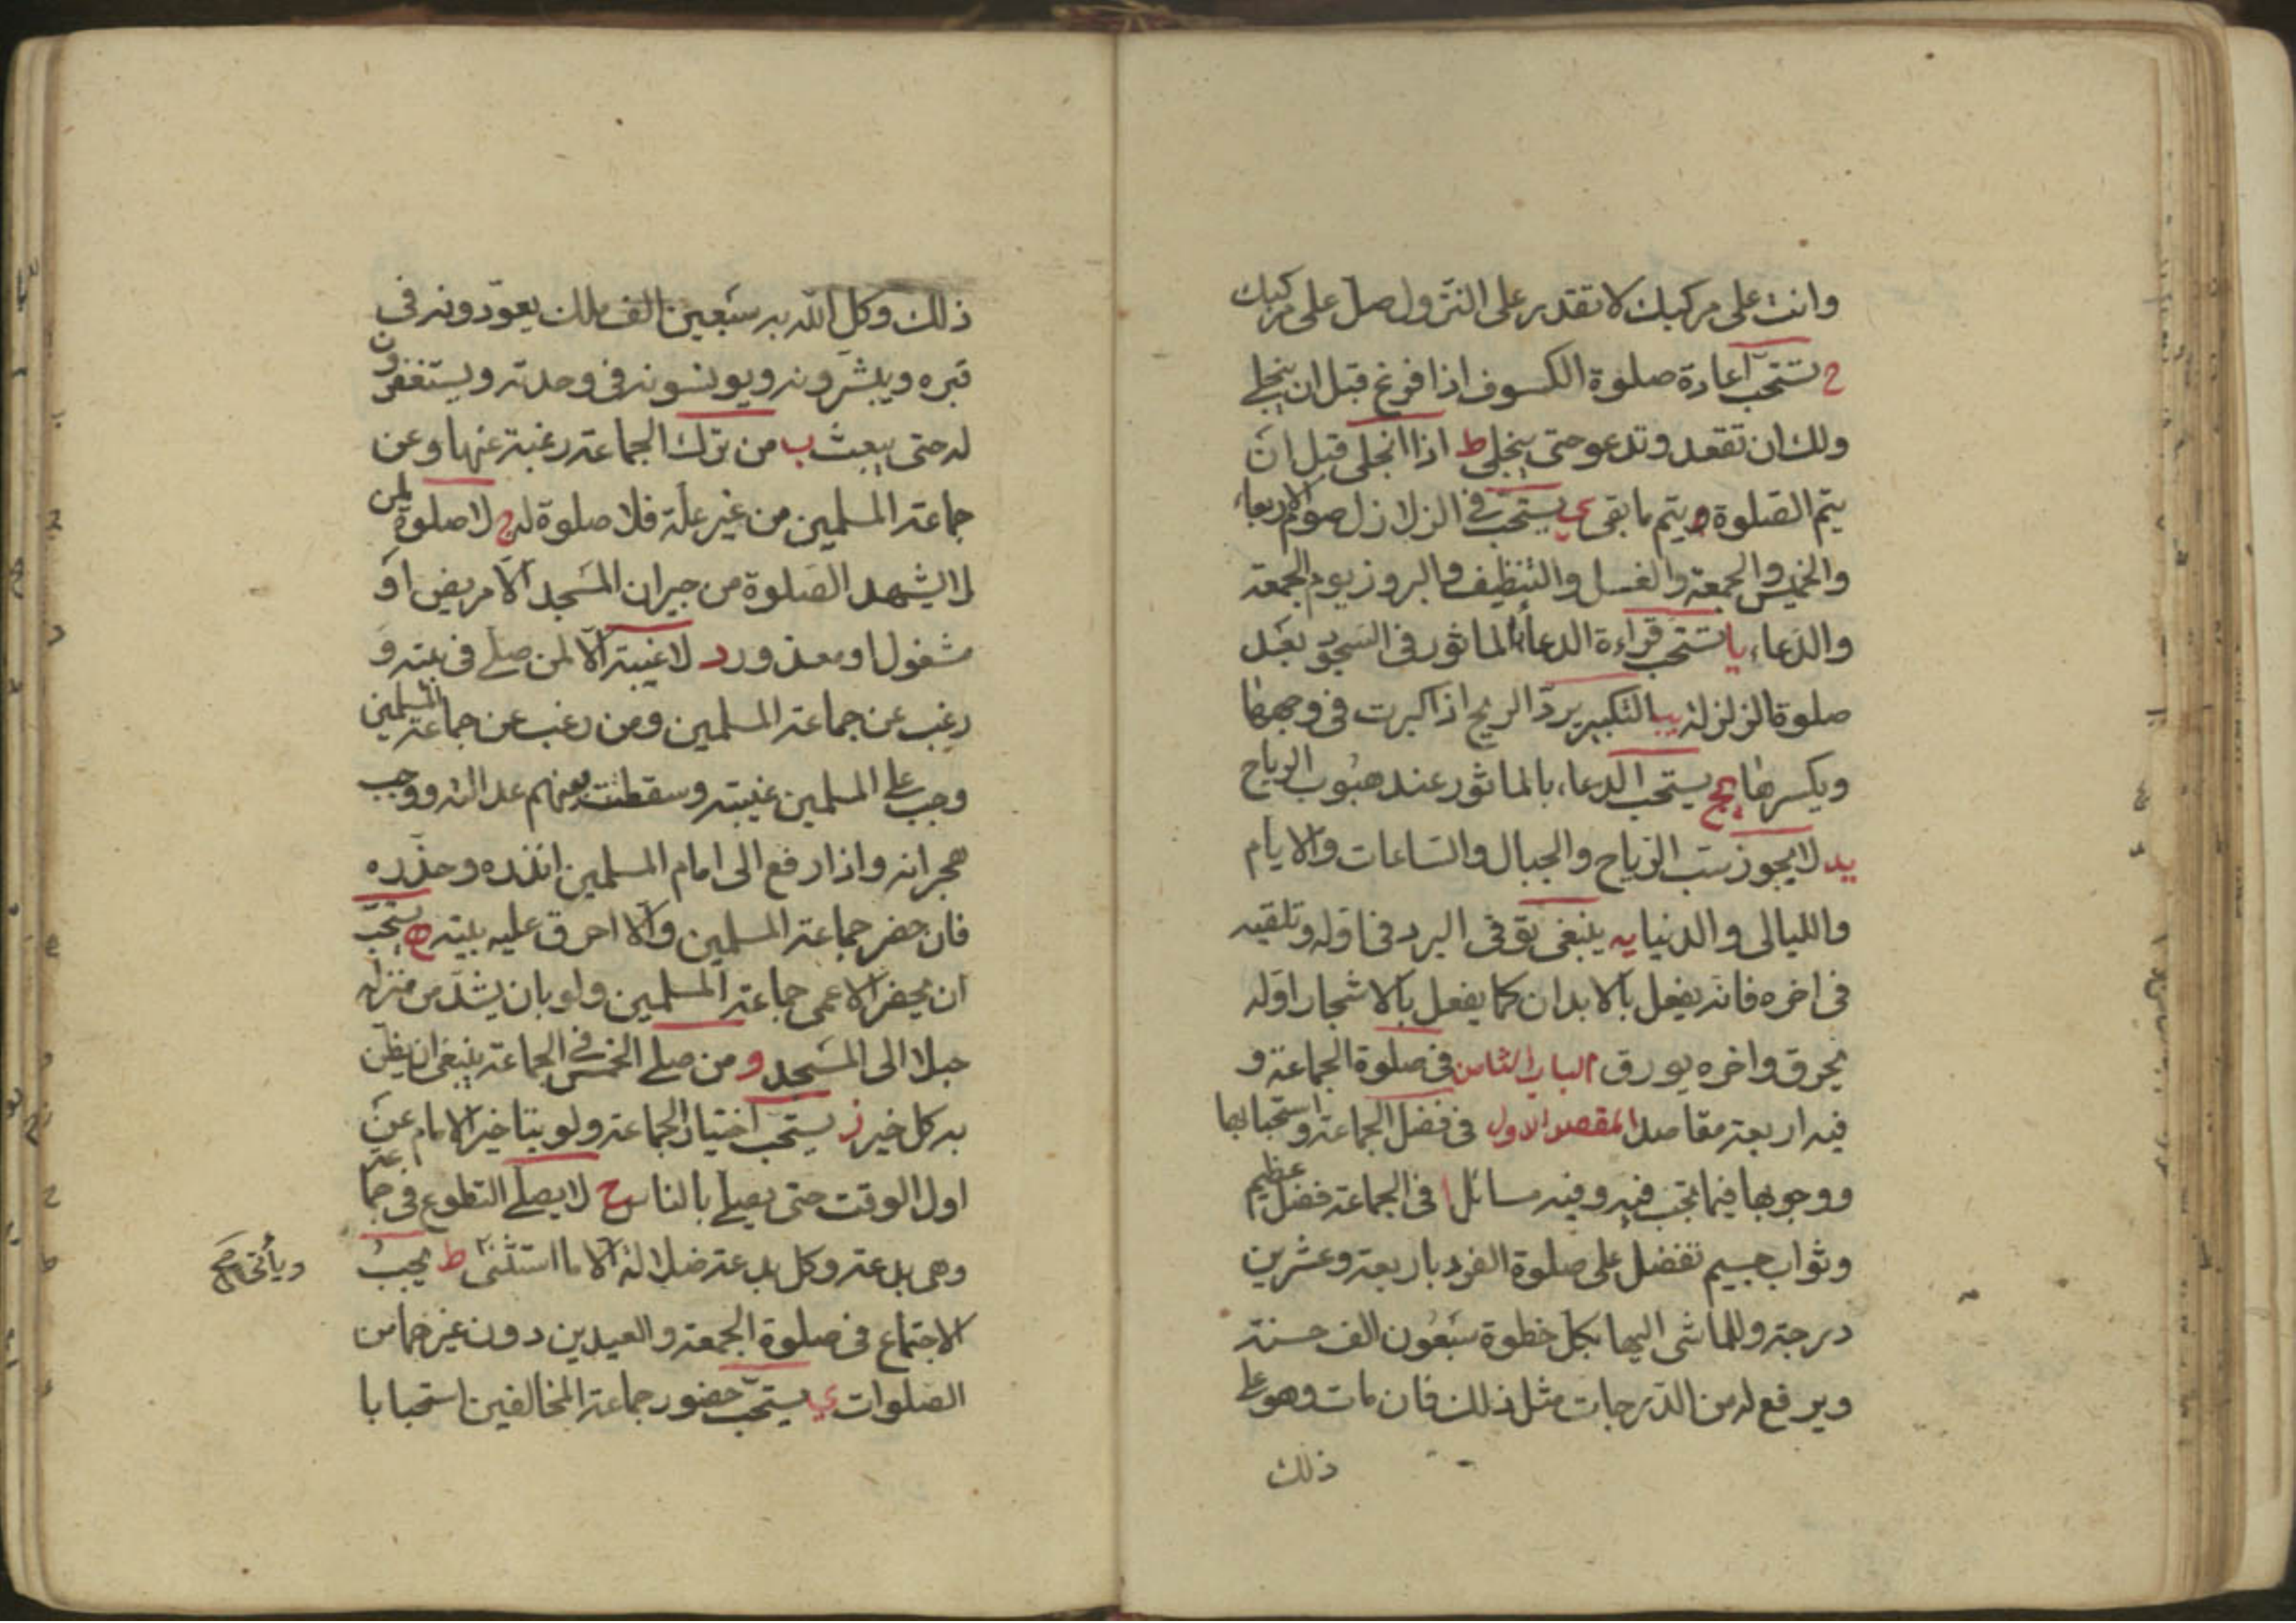 وانت على مركبك لا تقدر على النزول صل على مركبك
ح تستحب اعادة صلوة الكسوف اذا فرغ قبل ان ينجلي
ولك ان تقعد وتدعو حتى ينجلي ط اذا انجلى قبل ان
يتم الصلوة يتم ما بقى ي يستحب في الزلازل صوم الاربعاء
والخميس والجمعة والغسل والتنظيف والبروز يوم الجمعة
والدعاء يا تستحب قراءة الدعاء الماثور في السجود بعد
صلوة الزلزلة يب التكبير يرد الريح اذا كبرت في وجهها
ويكسرها يج يستحب الدعاء بالماثور عند هبوب الرياح
يد لا يجوز سب الرياح والجبال والساعات والايام
والليالى والدنيا يه ينبغى توقى البرد في اوله وتلقيه
في اخره فانه يفعل بالابدان كما يفعل بالاشجار اوله
يحرق واخره يورق الباب الثامن في صلوة الجماعة و
فيه اربعة مقاصد المقصد الاول في فضل الجماعة واستحبابها
ووجوبها فيما تجب فيه وفيه مسائل ا في الجماعة فضل عظيم
وثواب جسيم تفضل على صلوة الفرد باربعة وعشرين
درجة وللماشى اليها بكل خطوة سبعون الف حسنة
ويرفع له من الدرجات مثل ذلك فان مات وهو على
ذلك
ذلك وكل الله به سبعين الف ملك يعودونه في
قبره ويبشرونه ويونسونه في وحدته ويستغفرون
له حتى يبعث ب من ترك الجماعة رغبة عنها وعن
جماعة المسلمين من غير علة فلا صلوة له ج لا صلوة لمن
لا يشهد الصلوة من جيران المسجد الا مريض او
مشغول او معذور د لا غيبة الا لمن صلى في بيته و
رغب عن جماعة المسلمين ومن رغب عن جماعة المسلمين
وجب على المسلمين غيبته وسقطت بينهم عدالته ووجب
هجرانه واذا رفع الى امام المسلمين انذره وحذره
فان حضر جماعة المسلمين والا احرق عليه بيته ه يستحب
ان يحضر الاعمى جماعة المسلمين ولو بان يشد من منزله
حبلا الى المسجد و من صلى الخمس في الجماعة ينبغى ان يظن
به كل خير ز يستحب اختيار الجماعة ولو بتاخير الامام عن
اول الوقت حتى يصلى بالناس ح لا يصلى التطوع في جماعة
وهى بدعة وكل بدعة ضلالة الا ما استثنى ط يجب
وياتى صح
الاجتماع في صلوة الجمعة والعيدين دون غيرهما من
الصلوات ي يستحب حضور جماعة المخالفين استحبابا